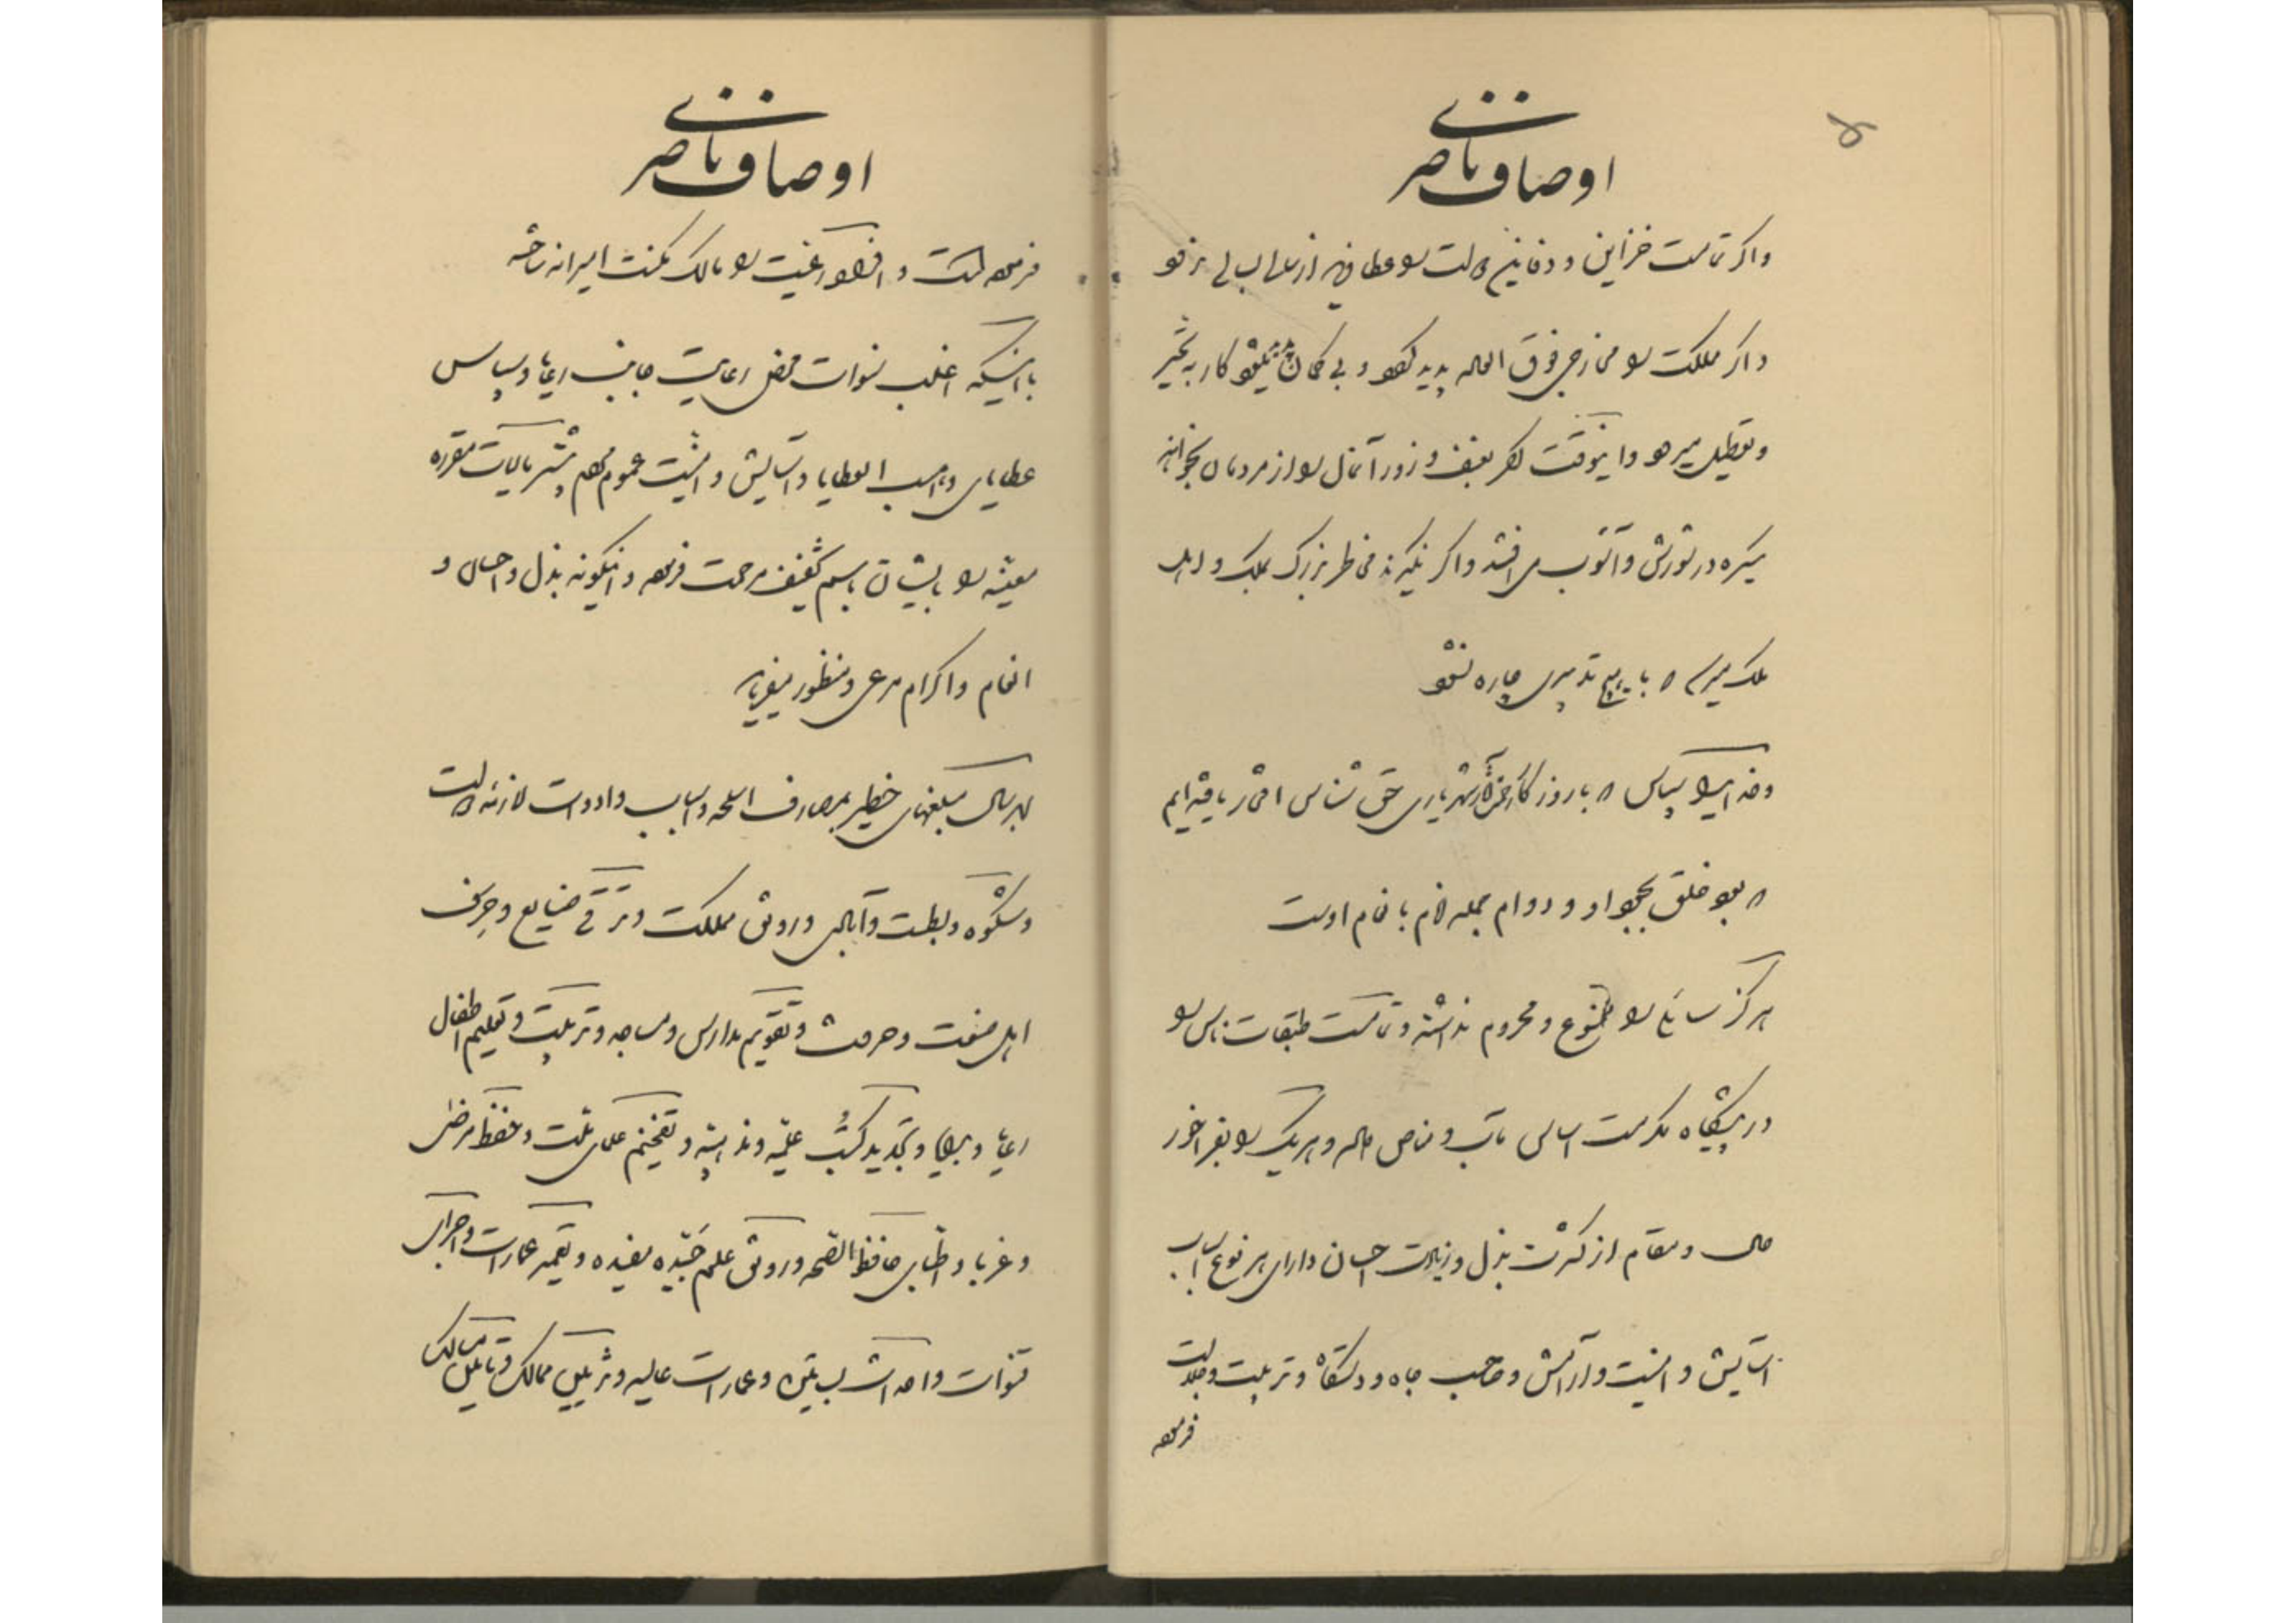 اوصاف ناصری
واکر تمامت خزاین و دفاین دولت را عطا
واکر مملکت را مخارجی فوق العاده پدید کردد و بی کمان کار به تأخیر
و تعطیل میرود و اینوقت اکر بعنف و زور آنمال را از مردمان بخواهند
یکسره در شورش و آشوب می افتد و اکر نکیرند مخاطر بزرک بملک و اهل
ملک میرسد که با هیچ تدبیری چاره نشود
و خدایرا سپاس که با روزکار شهریاری حق شناس افتخار یافته ایم
که بود خلق بجود او و دوام جمله انام بانعام اوست
هرکز سایل را ممنوع و محروم نداشته و تمامت طبقات ناس را
در پیشکاه مکرمت اساس مآب و مناص داده و هریک را بفراخور
حال و مقام از کثرت بذل و زیادت احسان دارای هر نوع اسباب
آسایش و امنیت و آرامش و صاحب جاه و دستکاه و تربیت و جلالت
فرموده
اوصاف ناصری
فرموده است و افراد رعیت را مالک مکنت امیرانه ساخته
با اینکه اغلب سنوات محض رعایت جانب رعایا و سپاس
عطایای واهب العطایا و آسایش و امنیت عموم مردم بیشتر مالیات مقرره
معینه را بایشان باسم تخفیف مرحمت فرموده و اینکونه بذل و احسان و
انعام و اکرام مرعی و منظور میفرمایند
هر سال مبلغهای خطیر بمصارف اسلحه و اسباب و ادوات لازمه دولت
و شکوه و بسطت و آبادی و رونق مملکت و ترقی صنایع و حرف
اهل صنعت و حرفت و تقویم مدارس و مساجد و تربیت و تعلیم اطفال
رعایا و برایا و تجدید کتب علمیه و مذهبیه و تفخیم علمای ملت و حفظ مرضی
و غربا و اطبای حافظ الصحه و رونق علوم جیّده مفیده و تعمیر عمارات و اجرای
قنوات و احداث بساتین و عمارات عالیه و تزیین ممالک و تأمین مسالک